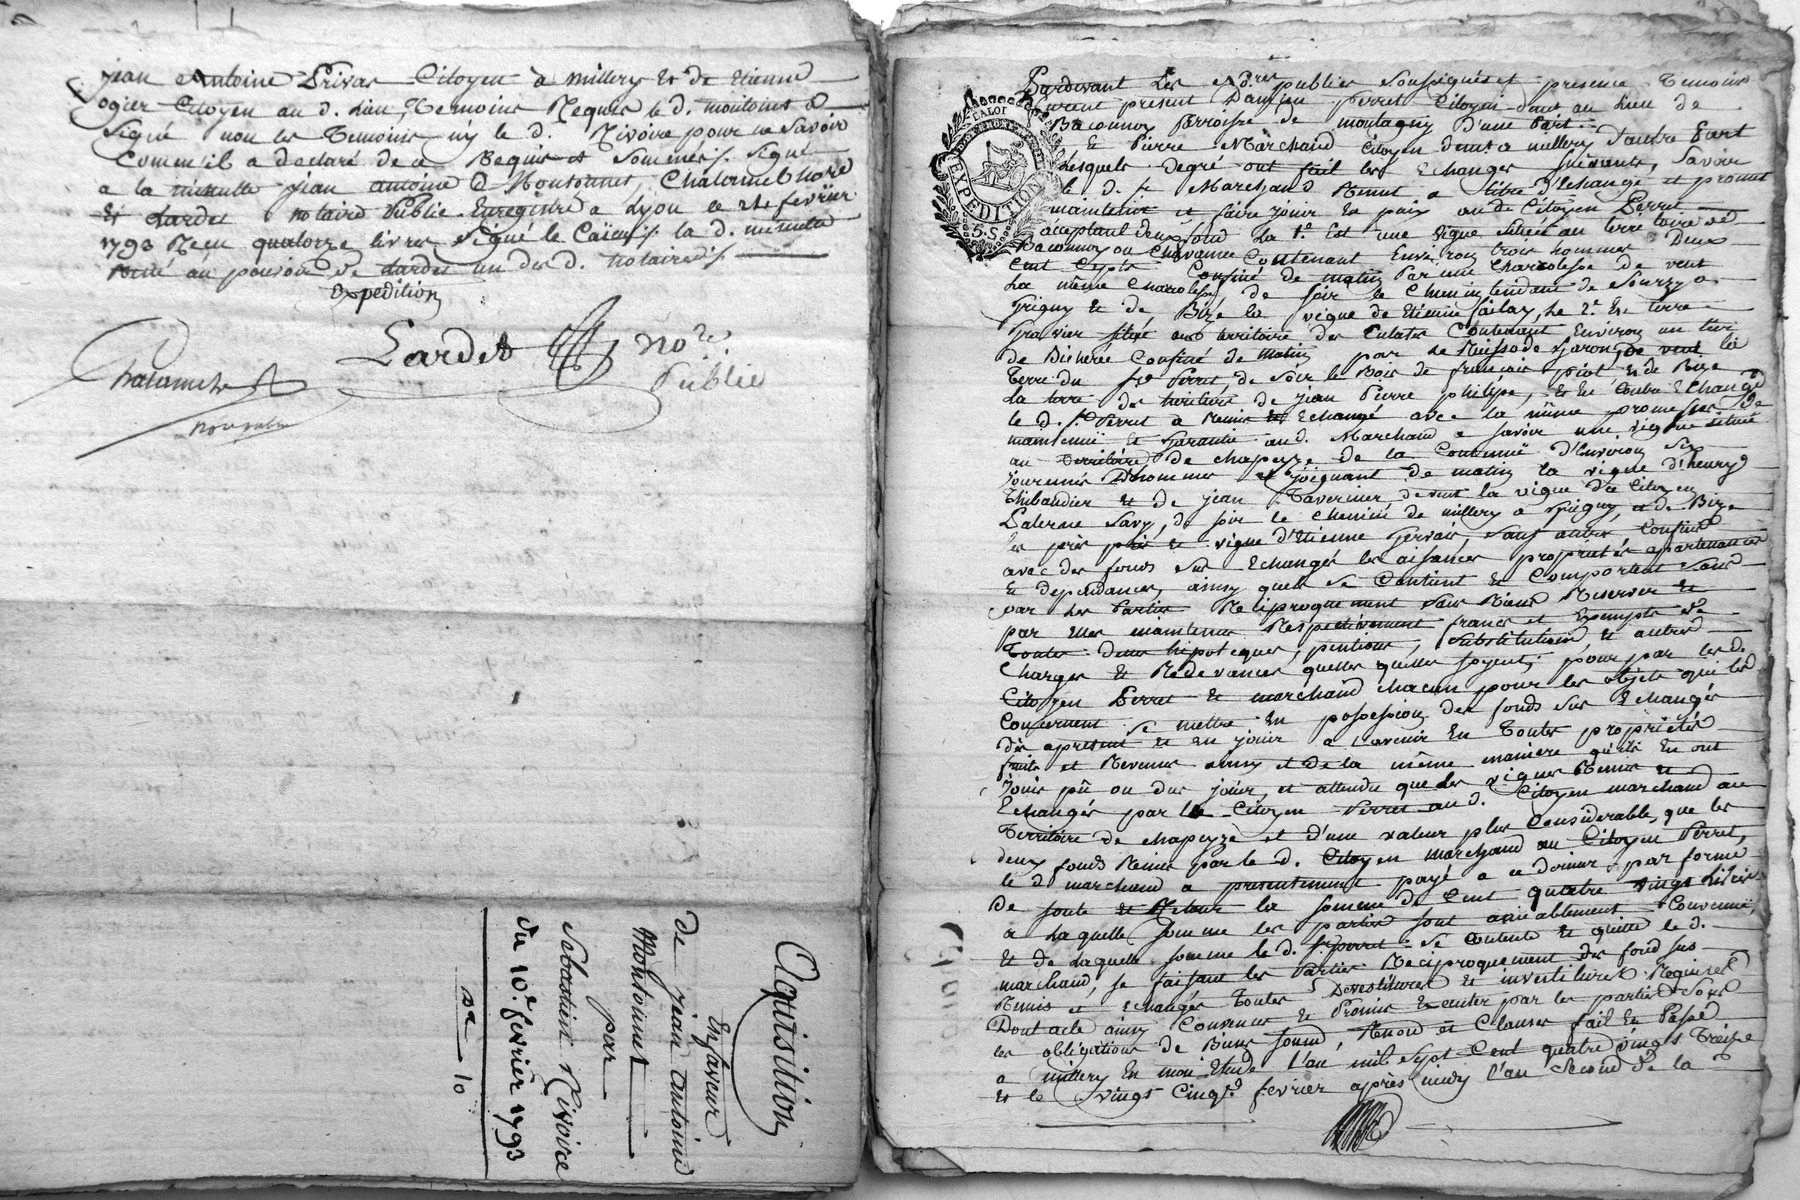 jean antoine Privas Citoyen a millery et de etienne
ogier Citoyen au d. lieu, temoins Requis le d. montonnet a
signé non les temoins ny le d. Rivoire pour ne savoir
comm'il a declaré de ce Requis et sommés /. signé
a la minutte jean antoine Montonnet, Chalumet noré
et Lardet notaire Public Enregistré a Lyon le 21e fevrier
1793 Reçu quatorze livres signé le /. la d. minutte
au pouvoir de Lardet un des d. notaires /.
Expedition
Lardet no.re
Public
Aquisition
En faveur
de jean antoine
Montonnet
par
Sebastien Rivoire
du 10.e fevrier 1793
10
Pardevant Les No.res publics soussignés et presence temoins
furent present Damien Perret Citoyen dem.t au Lieu de
Baconnoy Parroisse de montagny D'une Part
Et Pierre Marchand Citoyen dem.t a millery D'autre Part
Lesquels degré ont fait les Echanges suivants, savoir
le d. Marchand Remet a titre d'Echange et promet
maintenir et faire jouir en paix au d. Citoyen Perret
acceptant deux fond La 1.e Est une vigne située au territoire de
Baconnoy ou Chavanne Contenant Environ trois hommes Deux
Cent Cepts Confiné de matin Par une Charolesse de vent
La même Charolesse de soir le Chemin tendant de Sourzy a
Grigny et de Bize la vigne de Etienne, Le 2.e En terre
Gravier situé au territoire des Culates Contenant Environ un tier
de Bicherée Confiné de Matin par Le Ruisseau de Garon, de vent la
terre du Perret, de soir le Bois de francois piot et de Bize
La terre de jean Pierre philipe, Et En Contre Echange
le d. Perret a Remis et Echangé avec la même promesse de
maintenir et Garantie au d. Marchand a savoir une vigne située
au territoire de chapeyze de La Commune d'Environ six
journées D'hommes et joignant de matin la vigne d'henry
Thibaudier et de jean Tavernier de vent la vigne du Citoyen
Laterne Savy, de soir le Chemin de millery a Grigny, et de Bize
Les près et vigne d'Etienne Gervais, sauf autres Confins
avec des fonds sus Echangés les aisances proprietés apartenances
Et dependances, ainsy quelles se Contient et Comportent sans
par Les Parties Reciproquement sans Rien Reserver et
par elles maintenus Respectivement francs et Exempts de
toutes dettes hipoteques, pentions, substitutions et autres
Charges et Redevances quelles quelles soyent, pour par les d.
Citoyen Perret et marchand chacun pour les objets qui les
Concernent se mettre En possession des fonds sus Echangés
dès apresent et en jouir a L'avenir En toutes proprietés
fruits et Revenus ainsy et de la même maniere qu'ils En ont
jouis pû ou dus jouir, et attendu que les vignes Remis et
Echangés par le Citoyen Perret au d. Citoyen marchand au
Territoire de chapeyze et d'une valeur plus Considerable, que les
deux fonds Remis par le d. Citoyen marchand au Citoyen Perret,
le d. marchand a presentement payé a ce dernier par forme
de soute et Retour la somme de Cent quatre vingt Livres
a Laquelle somme les parties sont amiablement Convenue,
Et de Laquelle somme le d. Perret se Contente et quitte le d.
marchand, se faisant les Parties Reciproquement des fond sus
Remis et echangés toutes Devestitures et investitures Requises
Dont acte ainsy Convenus et Promis Executer par les parties sous
les obligations de Biens soumi, Renon et Clauses fait et Passé
a millery En mon Etude L'an mil sept Cent quatre vingts treize
et le vingt Cinq.e fevrier après midy l'an second de la
DALOT
EXPEDITION
5. S.